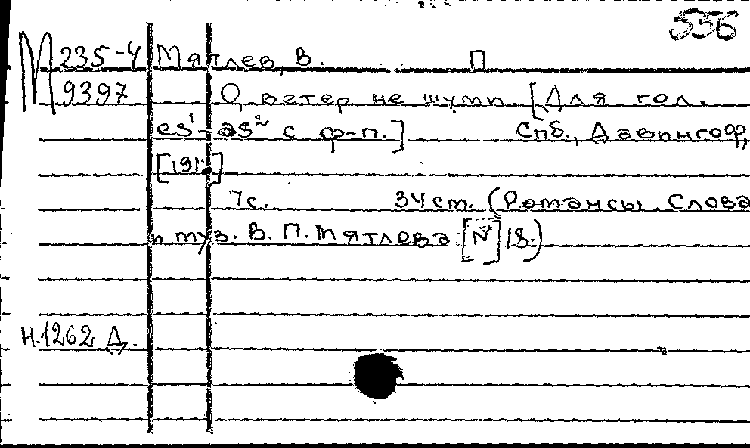 556
М 235-4 Мятлев, В. П
9397 О, ветер не шуми [Для гол.
es¹-as² с ф-п.] Спб., Давингоф,
[191.]
7с. 34 ст. (Романсы. Слова
и муз. В. П. Мятлева [№] 18.)
Н.1262 Д.